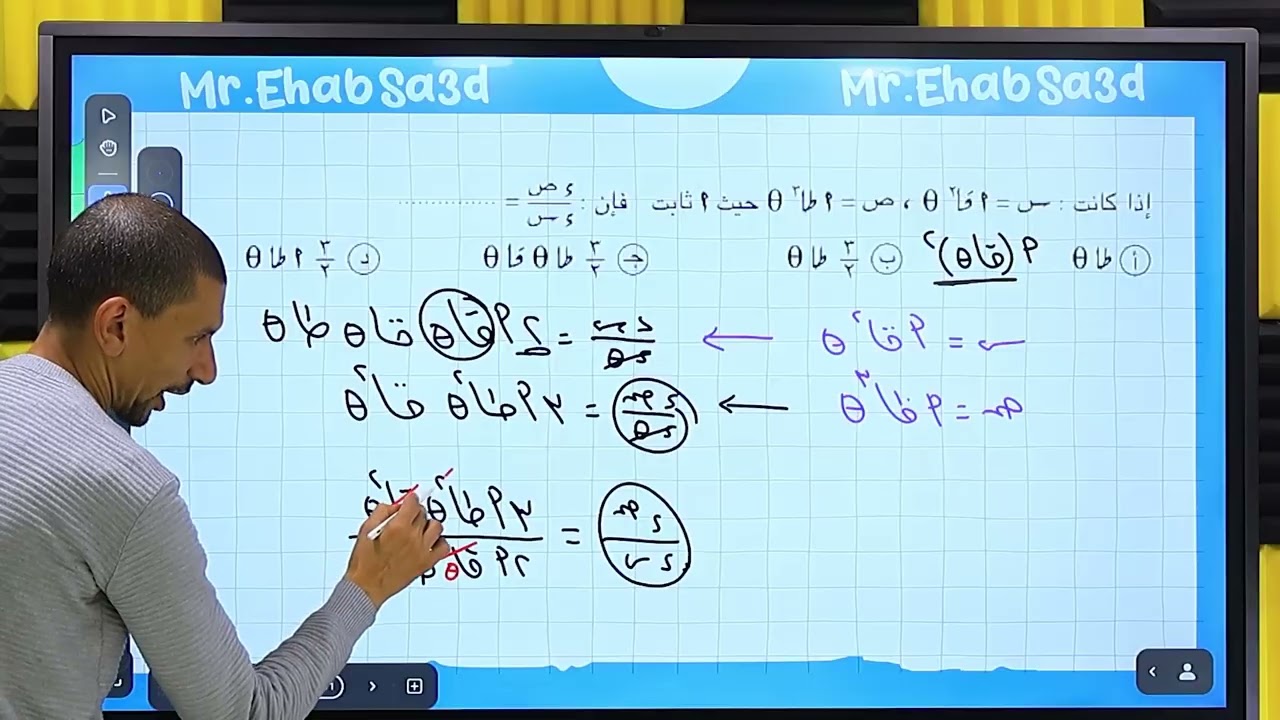 Mr.EhabSa3d Mr.EhabSa3d
إذا كانت : س = ٢ قا٢ θ ، ص = ٢ طا٣ θ حيث ٢ ثابت فإن : ء ص / ء س = ..............
أ طا θ ب ٣/٢ طا θ ج ٣/٢ طا θ قا θ د ٣/٢ ٢ طا θ
٢ (قا θ)٢
س = ٢ قا٢ θ ← ء س / ء θ = ٢ ٢ قا θ قا θ طا θ
ص = ٢ طا٣ θ ← ء ص / ء θ = ٣ ٢ طا٢ θ قا٢ θ
ء ص / ء س = ٣ ٢ طا٢ θ قا٢ θ / ٢ ٢ قا θ